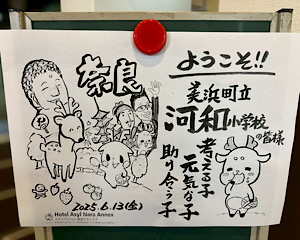 ようこそ!!
美浜町立
河和小学校の皆様
考える子
元気な子
助け合う子
奈良
2025.6.13(金)
Hotel Asyl Nara Annex